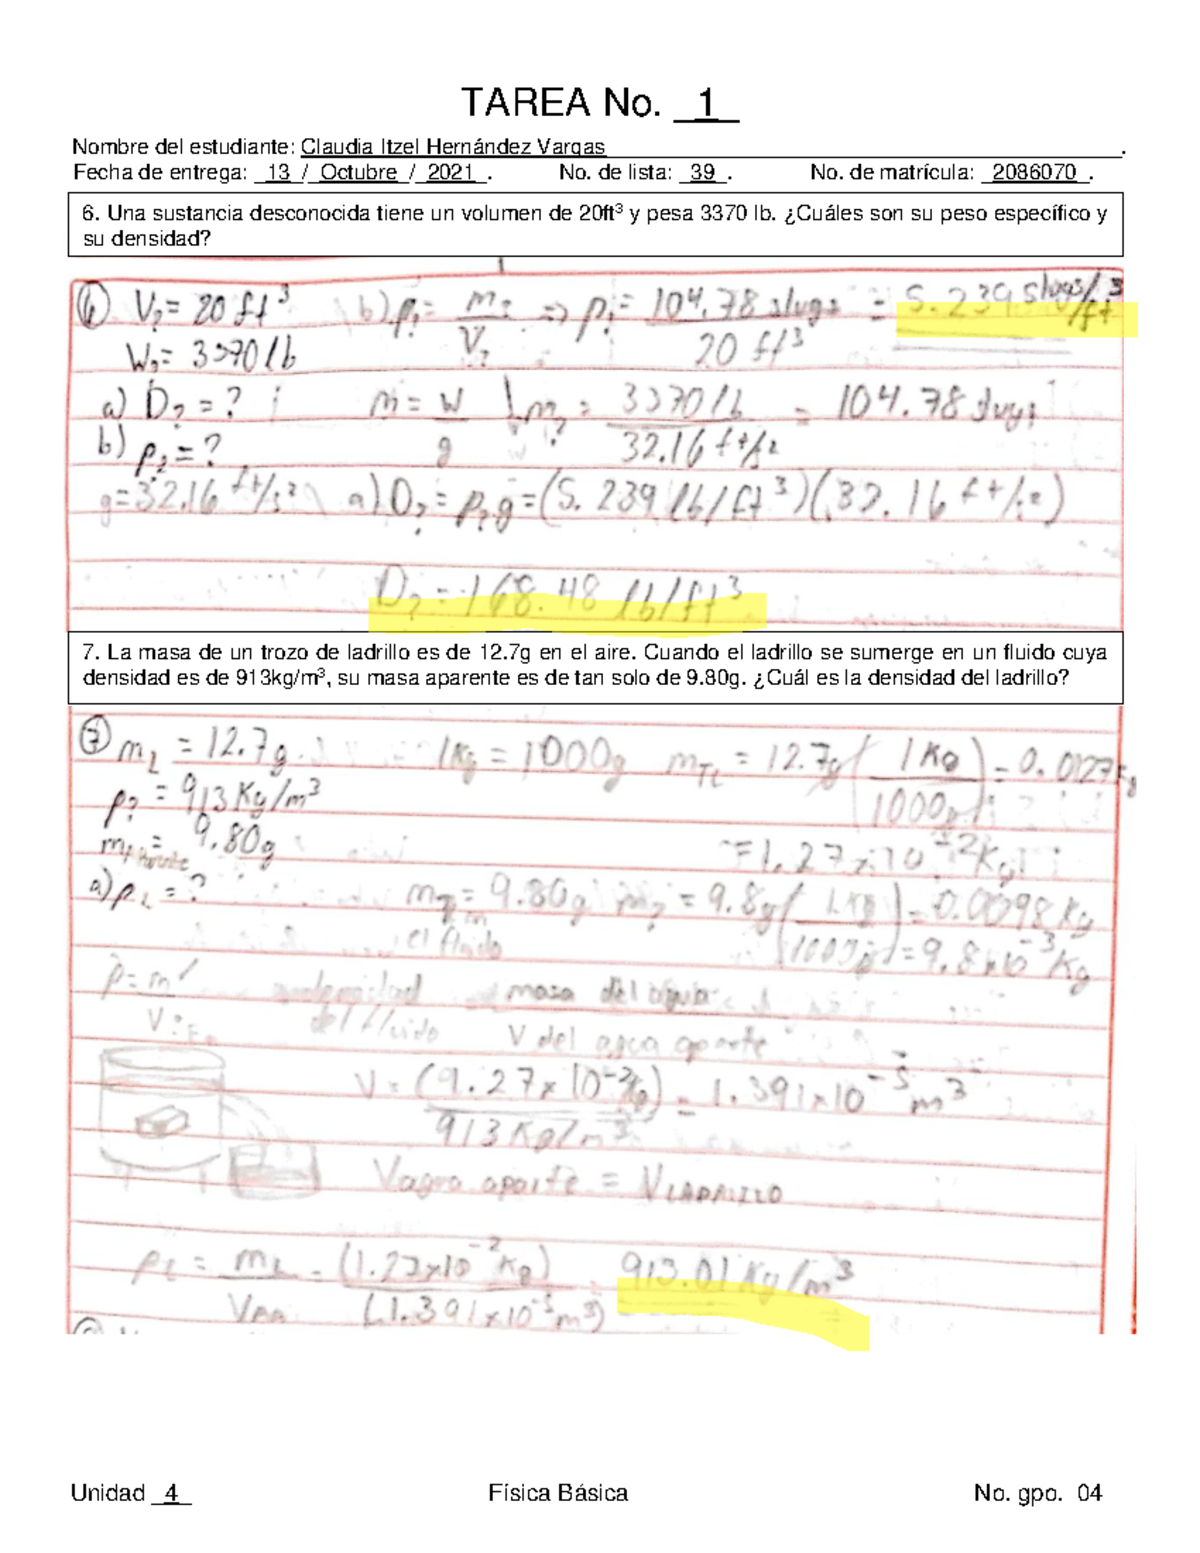 TAREA No. 1
Nombre del estudiante: Claudia Itzel Hernández Vargas.
Fecha de entrega: 13 / Octubre / 2021. No. de lista: 39. No. de matrícula: 2086070.
6. Una sustancia desconocida tiene un volumen de 20ft³ y pesa 3370 lb. ¿Cuáles son su peso específico y
su densidad?
6 V? = 20 ft³ b) ρ? = m?/V? => ρ? = 104.78 slugs / 20 ft³ = 5.239 slugs/ft³
W? = 3370 lb
a) D? = ? m = W/g m? = 3370 lb / 32.16 ft/s² = 104.78 slugs
b) ρ? = ?
g = 32.16 ft/s² a) D? = ρ? g = (5.239 lb/ft³)(32.16 ft/s²)
D? = 168.48 lb/ft³
7. La masa de un trozo de ladrillo es de 12.7g en el aire. Cuando el ladrillo se sumerge en un fluido cuya
densidad es de 913kg/m³, su masa aparente es de tan solo de 9.80g. ¿Cuál es la densidad del ladrillo?
7 mL = 12.7g 1Kg = 1000g mTL = 12.7g (1Kg / 1000g) = 0.0127Kg
ρ? = 913 Kg/m³
= 9.80g = 1.27x10⁻²Kg
a) ρL = ? = 9.80g = 9.8g (1Kg / 1000g) = 0.0098 Kg
el fluido = 9.8x10⁻³Kg
ρ = m/V masa del
del fluido V del agua aparte
V = / 913 Kg/m³ = 1.391x10⁻⁵ m³
Vagua aparte = VLADRILLO
ρL = mL / = (1.27x10⁻² kg) / (1.391x10⁻⁵ m³) = 913.01 Kg/m³
Unidad 4 Física Básica No. gpo. 04